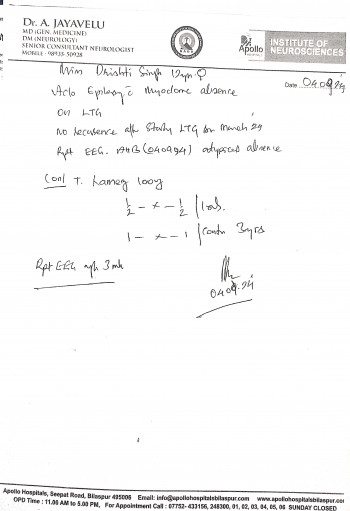 Dr. A. JAYAVELU
MD (GEN. MEDICINE)
DM (NEUROLOGY)
SENIOR CONSULTANT NEUROLOGIST
MOBILE - 98933-50928
Apollo
INSTITUTE OF
NEUROSCIENCES
Miss Drishti Singh 12yrs ♀
Date 04.09.24
Epilepsy c myoclonic absence
On LTG
No recurrence after Starting LTG on March 24
Rpt EEG. (040924) atypical absence
Cont T. Lametec 100mg
1/2 - x - 1/2 |
1 - x - 1 | Contn 3yrs
Rpt EEG after 3 mth
04.09.24
Apollo Hospitals, Seepat Road, Bilaspur 495006 Email: info@apollohospitalsbilaspur.com
OPD Time : 11.00 AM to 5.00 PM, For Appointment Call : 07752- 433156, 248300, 01, 02, 03, 04, 05, 06 SUNDAY CLOSED